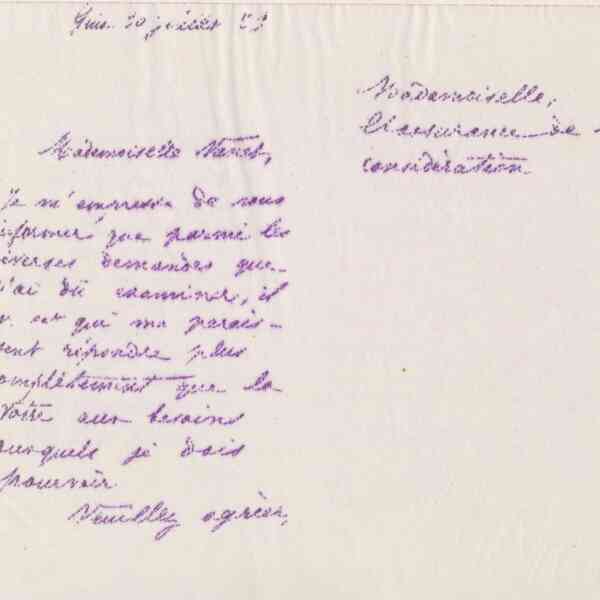 20 juillet
Mademoiselle
Je m'empresse de vous
informer que parmi les
diverses demandes que
j'ai dû examiner, il
en est qui me parais-
sent répondre plus
complètement que la
vôtre aux besoins
auxquels je dois
pourvoir.
Veuillez agréer,
Mademoiselle,
l'assurance de
considération